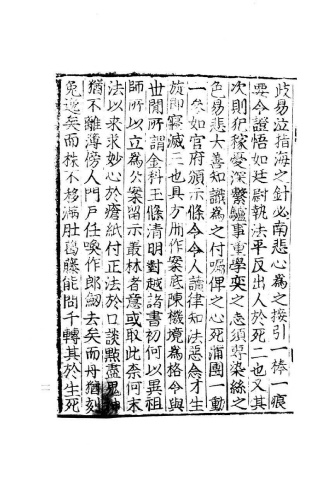 歧易泣指海之針必南悲心爲之接引一棒一痕
要令證悟如廷尉執法平反出人於死二也又其
次則犯稼憂深繫驢事重學奕之志須專染絲之
色易悲大善知識爲之付囑俾之心死蒲團一動
一參如官府頒示條令令人讀律知法惡念才生
旋即寢滅三也具方冊作案底陳機境爲格令與
世間所謂金科玉條清明對越諸書初何以異祖
師所以立爲公案留示叢林者意或取此奈何末
法以來求妙心於瘡紙付正法於口談點盡鬼神
猶不離薄傍人門戶任喚作郎劒去矣而舟猶刻
兔逸矣而株不移滿肚葛藤能問千轉其於生死